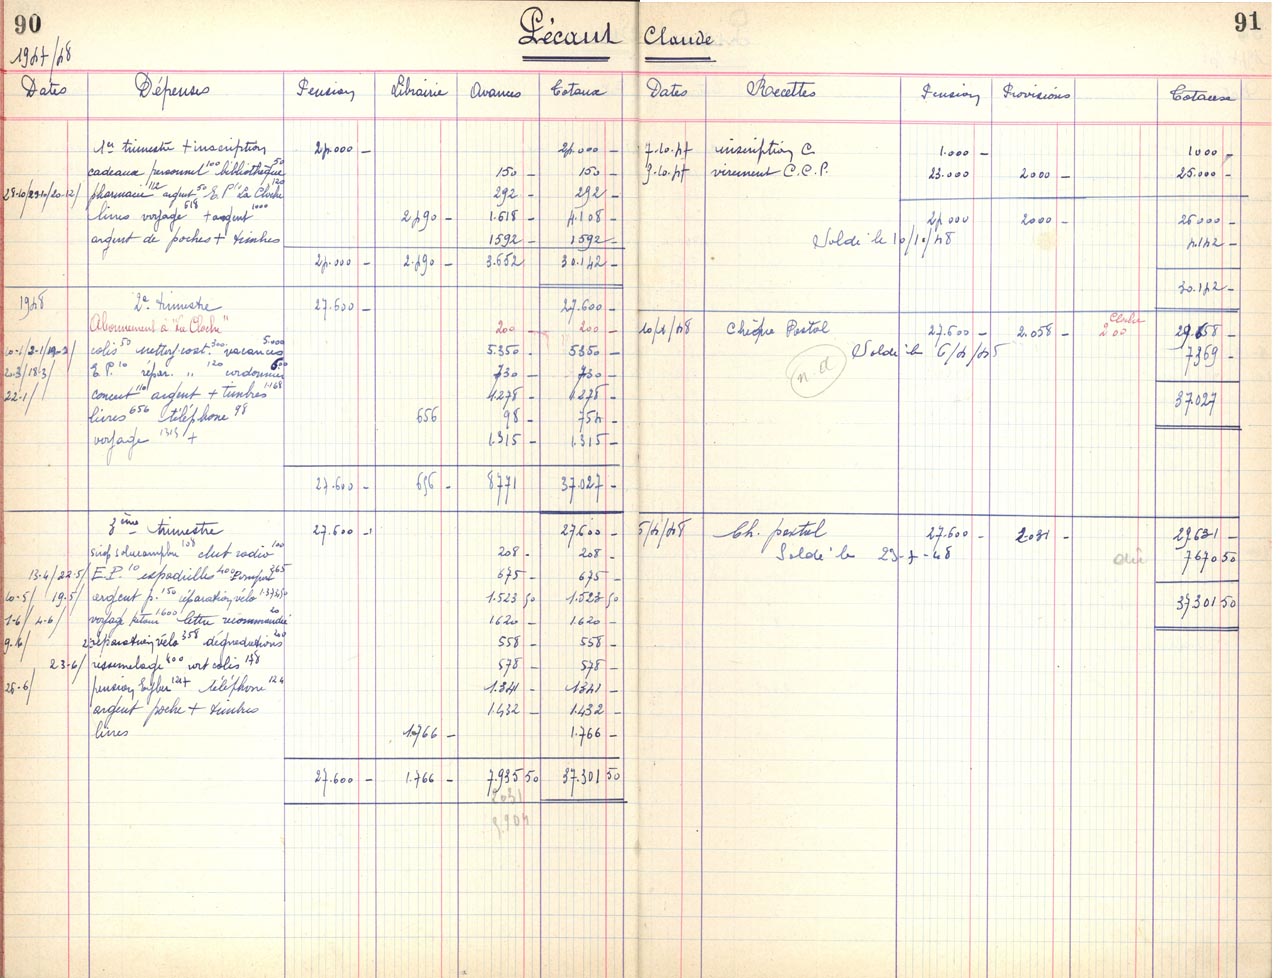 90
Pécaut Claude
91
1947/48
Dates Dépenses Pension Librairie Avances Totaux
1er trimestre + inscription 24.000 - 24.000 -
cadeaux personnel 100 bibliothèque 50 150 - 150 -
28-10/29-10/20-12/ pharmacie 112 argent 50 E.P. "La Cloche 120 292 - 292 -
livres voyage 618 + argent 1000 2490 - 1.618 - 4.108 -
argent de poches + timbres 1592 - 1592 -
24.000 - 2.490 - 3.652 - 30.142 -
1948 2e trimestre 27.600 - 27.600 -
Abonnement à "La Cloche" 200 - 200 -
colis 50 300 vacances 5.000 5.350 - 5350 -
E.P. 10 répar. " 120 cordonnier 600 730 - 730 -
22-1/ concert 110 argent + timbres 1168 1278 - 1278 -
livres 656 téléphone 98 656 98 - 754 -
voyage 1315 + 1.315 - 1.315 -
27.600 - 656 - 8771 37.027 -
3ème trimestre 27.600 - 27.600 -
108 club radio 100 208 - 208 -
13-4/22-5/ E.P. 10 espadrilles 400 265 675 - 675 -
10-5/ 19-5/ argent p. 150 réparation vélo 1373 50 1.523 50 1.523 50
1-6/ 4-6/ voyage retour 1600 lettre recommandée 20 1620 - 1.620 -
réparation vélo 358 dégradations 200 558 - 558 -
23-6/ ressemelage 400 port colis 178 578 - 578 -
25-6/ pension 1217 téléphone 124 1.341 - 1341 -
argent poche + timbres 1.432 - 1.432 -
livres 1.766 - 1.766 -
27.600 - 1.766 - 7.935 50 37.301 50
2031
5.904
Dates Recettes Pension Provisions Totaux
7-10-47 inscription C. 1.000 - 1000 -
9-10-47 virement C.C.P. 23.000 2000 - 25.000 -
24 000 2000 - 26.000 -
Soldé le 10/1/48 4.142 -
30.142 -
10/1/48 Chèque Postal 27.600 - 2.058 - Cloche 200 29.858 -
Soldé le 6/4/48 7169 -
n.d
37.027
5/4/48 Ch. postal 27.600 - 2.031 - 29.631 -
Soldé le 29-7-48 dû 7670 50
37301 50